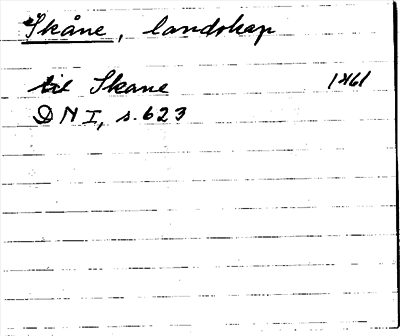 Skåne, landskap
til Skane 1461
D N I, s. 623